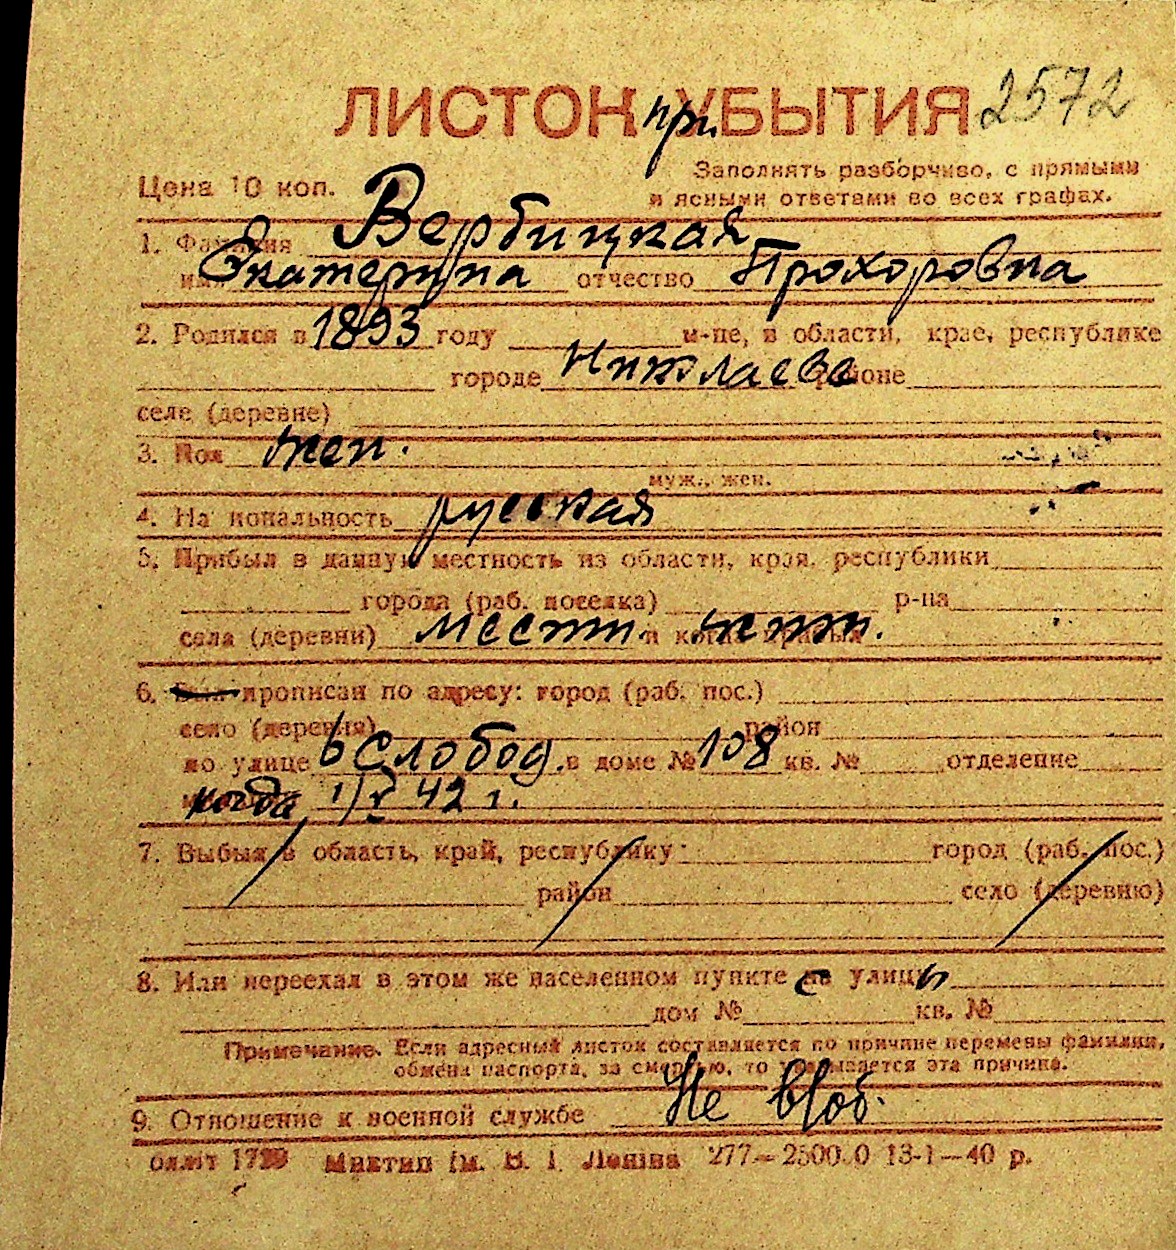 ЛИСТОК при УБЫТИЯ 2572
Заполнять разборчиво, с прямыми
Цена 10 коп.
и ясными ответами во всех графах.
1. Фамилия Вербицкая
имя Екатерина отчество Прохоровна
2. Родился в 1893 году м-це, в области, крае, республике
городе Николаеве районе
селе (деревне)
3. Пол жен.
муж., жен.
4. Национальность русская
5. Прибыл в данную местность из области, края, республики
города (раб. поселка) р-на
села (деревни) местн. и когда прибыл жит.
6. Был прописан по адресу: город (раб. пос.)
село (деревня) район
по улице 6 Слобод. в доме № 108 кв. № отделение
когда 1/X 42 г.
7. Выбыл в область, край, республику: город (раб. пос.)
район село (деревню)
8. Или переехал в этом же населенном пункте с улицы
дом № кв. №
Примечание. Если адресный листок составляется по причине перемены фамилии,
обмена паспорта, за смертью, то указывается эта причина.
9. Отношение к военной службе Не в/об.
1799 Миктип ім. В. І. Леніна 277—2500.0 13-1—40 р.